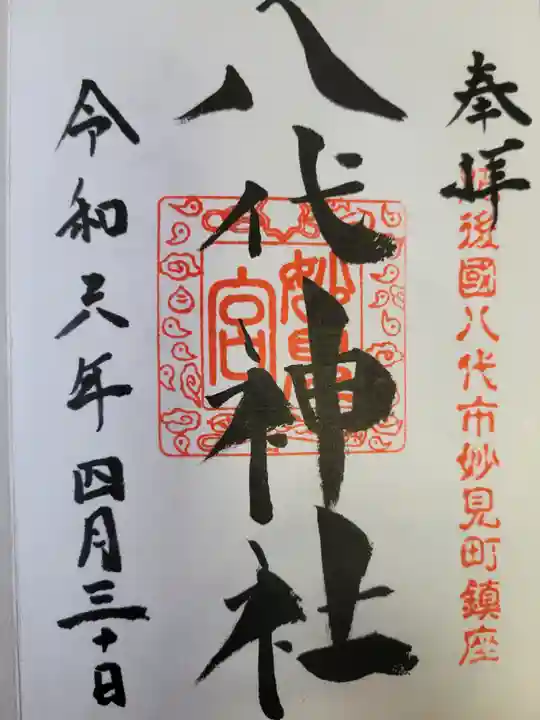 奉拝
肥後國八代市妙見町鎮座
八代神社
妙見宮
令和六年四月三十日